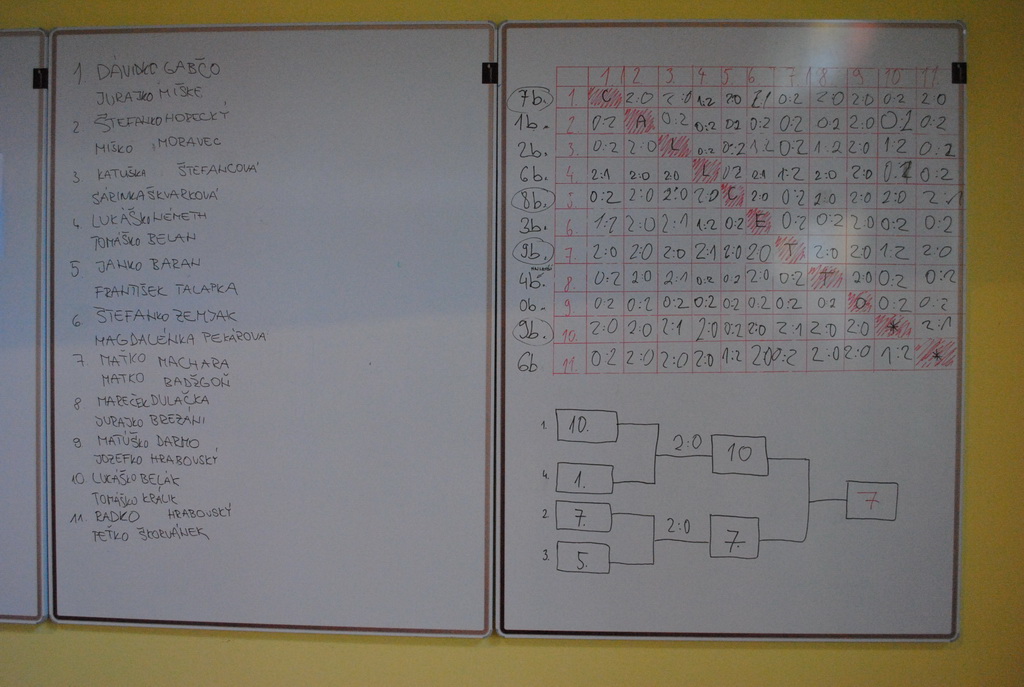 1 DÁVIDKO GABČO
JURAJKO MIŠKE
2 ŠTEFANKO HOPECKÝ
MIŠKO MORAVEC
3 KATUŠKA ŠTEFANCOVÁ
SÁRINKA ŠKVARKOVÁ
4 LUKÁŠKO NÉMETH
TOMÁŠKO BELAN
5. JANKO BARAN
FRANTIŠEK TALAPKA
6 ŠTEFANKO ZEMJAK
MAGDALÉNKA PEKÁROVA
7 MAŤKO MACHARA
MATKO BADŽGOŇ
8 MAREČEK DULAČKA
JURAJKO BREZÁNI
9 MATÚŠKO DARMO
JOZEFKO HRABOVSKÝ
10. LUKÁŠKO BELÁK
TOMÁŠKO KRÁLIK
11. RADKO HRABOVSKÝ
PEŤKO ŠKORVÁNEK
1 2 3 4 5 6 7 8 9 10 11
7b. 1. C 2:0 2:0 1:2 2:0 2:1 0:2 2:0 2:0 0:2 2:0
1b. 2. 0:2 A 0:2 0:2 0:2 0:2 0:2 0:2 2:0 0:2 0:2
2b. 3. 0:2 2:0 L 0:2 0:2 1:2 0:2 1:2 2:0 1:2 0:2
6b. 4. 2:1 2:0 2:0 L 0:2 2:1 1:2 2:0 2:0 0:2 0:2
8b. 5. 0:2 2:0 2:0 2:0 C 2:0 0:2 2:0 2:0 2:0 2:1
3b. 6. 1:2 2:0 2:1 1:2 0:2 E 0:2 0:2 2:0 0:2 0:2
9b. 7. 2:0 2:0 2:0 2:1 2:0 2:0 T 2:0 2:0 1:2 2:0
4b. 8. 0:2 2:0 2:1 0:2 0:2 2:0 0:2 T 2:0 0:2 0:2
0b. 9 0:2 0:2 0:2 0:2 0:2 0:2 0:2 0:2 O 0:2 0:2
9b. 10. 2:0 2:0 2:1 2:0 0:2 2:0 2:1 2:0 2:0 * 2:1
6b 11. 0:2 2:0 2:0 2:0 1:2 2:0 0:2 2:0 2:0 1:2 *
1. 10.
2:0 10
4. 1.
7
2. 7.
2:0 7.
3. 5.